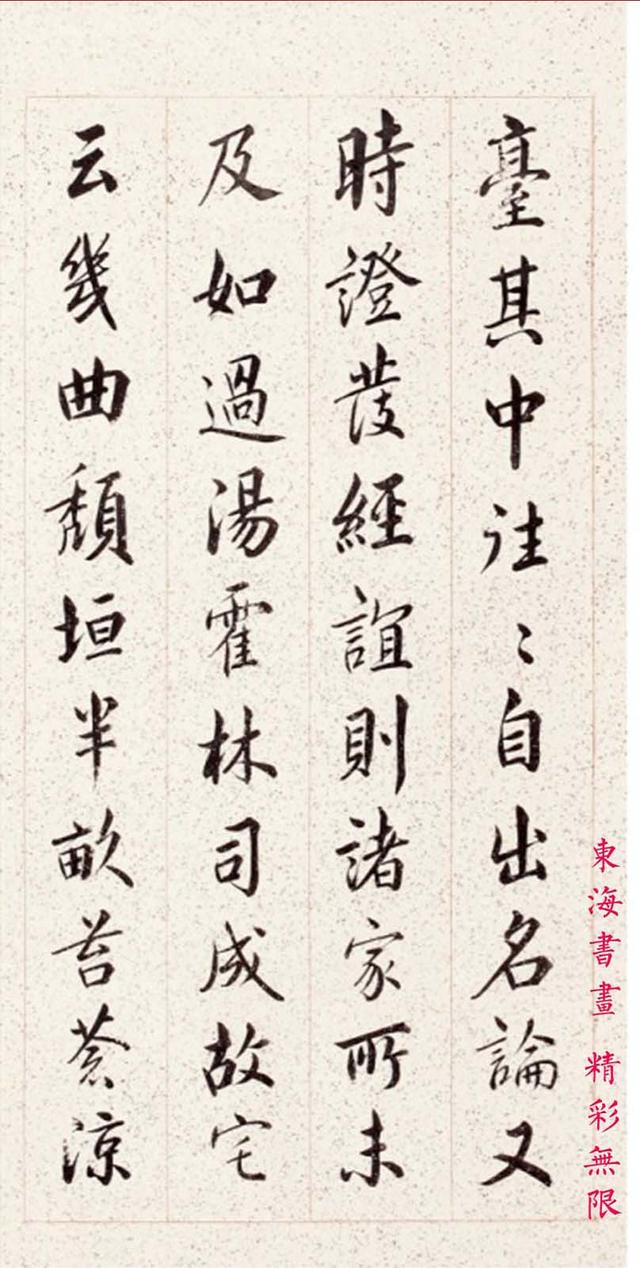 臺其中往〻自出名論又
時證發經誼則諸家所未
及如過湯霍林司成故宅
云幾曲頹垣半畝苔蒼涼
東海書畫 精彩無限